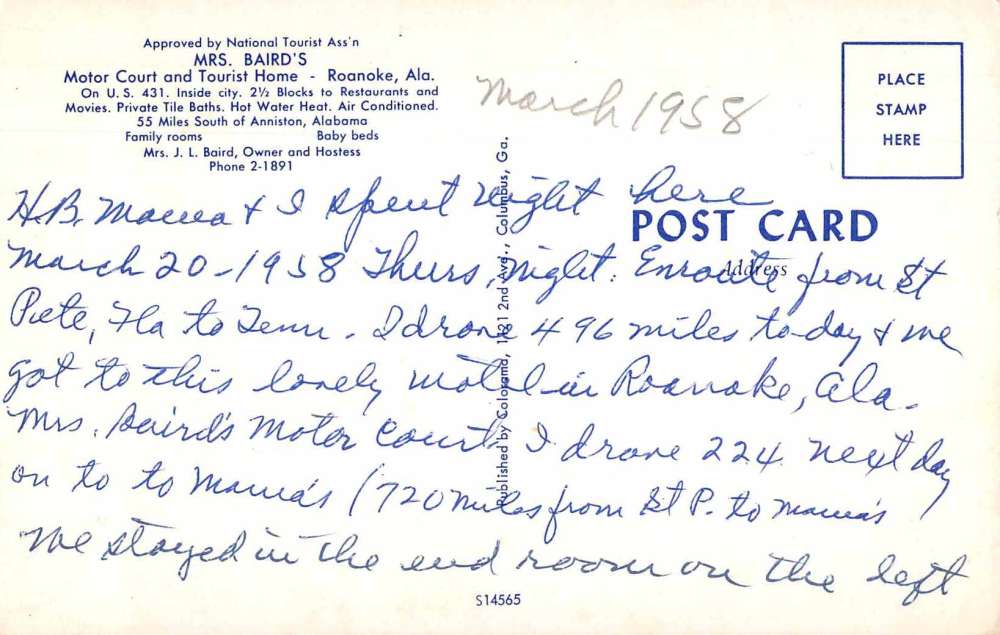 Approved by National Tourist Ass'n
MRS. BAIRD'S
Motor Court and Tourist Home - Roanoke, Ala.
On U. S. 431. Inside city. 2½ Blocks to Restaurants and
Movies. Private Tile Baths. Hot Water Heat. Air Conditioned.
55 Miles South of Anniston, Alabama
Family rooms Baby beds
Mrs. J. L. Baird, Owner and Hostess
Phone 2-1891
March 1958
PLACE
STAMP
HERE
POST CARD
Address
Published by Colorama, 1321 2nd Ave., Columbus, Ga.
H.B. Mama & I spent night here
March 20-1958 Thurs, night. Enroute from St
Pete, Fla to Tenn. I drove 496 miles to-day & we
got to this lovely motel in Roanoke, Ala.
Mrs. Baird's Motor Court. I drove 224 next day
on to to Mama's (720 miles from St P. to Mama's
We stayed in the end room on the left
S14565